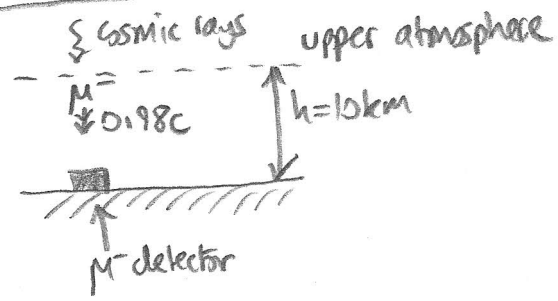 cosmic rays
upper atmosphere
μ⁻
0.98c
h=10km
μ⁻ detector